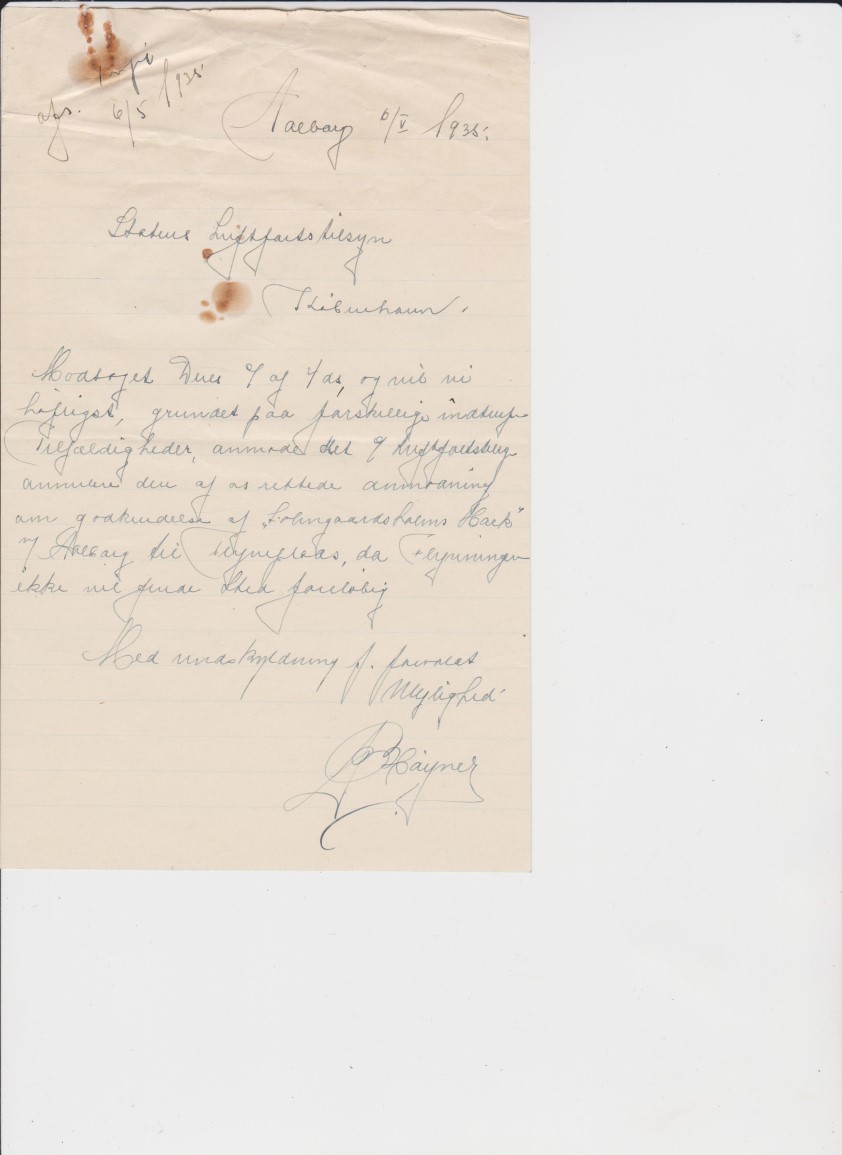 Kopi
afs. 6/5 1935
Aalborg 6/V 1935.
Statens Luftfartstilsyn
København.
Modtaget Deres af 4 ds, og vil vi
høfligst, grundet paa forskellige indtrufne
Tilfældigheder, anmode Det
annulere den af os rettede anmodning
om godkendelse af "Sohngaardsholms Mark"
v/ Aalborg til Flyveplads, da Flyvningen
ikke vil finde Sted foreløbig
Med undskyldning f. forvoldt
Ulejlighed.